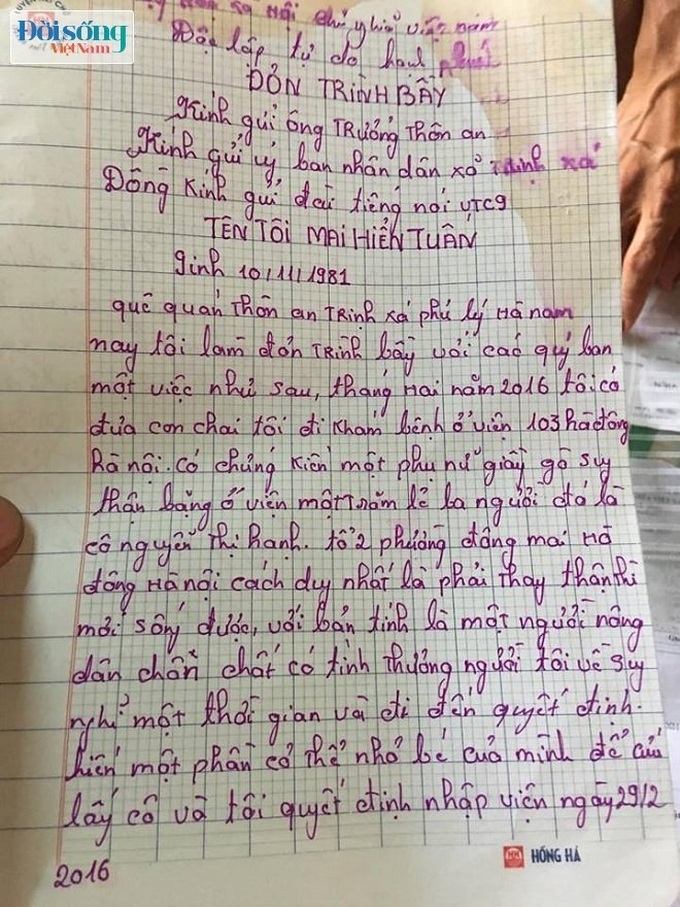 Đời sống
Việt Nam
hội chủ nghĩa việt nam
Độc lập tự do hanh phúc
ĐỎN TRÌNH BẦY
Kính gửi ông TRưởng Thôn an
Kính gửi uỷ ban nhân dân xã Trịnh xá
Đồng Kính gửi đài tiếng nói VTC9
TÊN TÔI MAI HIỂN TUÂN
Sinh 10/11/1981
quê quán Thôn an TRịnh xá phủ lý Hà nam
nay tôi lam đỏn TRình bầy với cac quý ban
một việc như sau, tháng Hai năm 2016 tôi có
đưa con chai tôi đi Khám bệnh ở viện 103 hà đông
hà nội. Có chứng kiến một phụ nữ giầy gò suy
thận bặng ở viện một Trăm lẻ ba người đó là
cô nguyễn Thị hạnh. tổ 2 phường đồng mai Hà
đông Hà nội cách duy nhất là phải Thay Thận thì
mới sống được, với bản tính là một người nông
dân chân chất có tình thương người tôi về suy
nghĩ một thời gian và đi đến quyết định.
hiến một phần cơ thể nhỏ bé của mình để cứu
lấy cô và tôi quyết định nhập viện ngày 29/2
2016
HỒNG HÀ